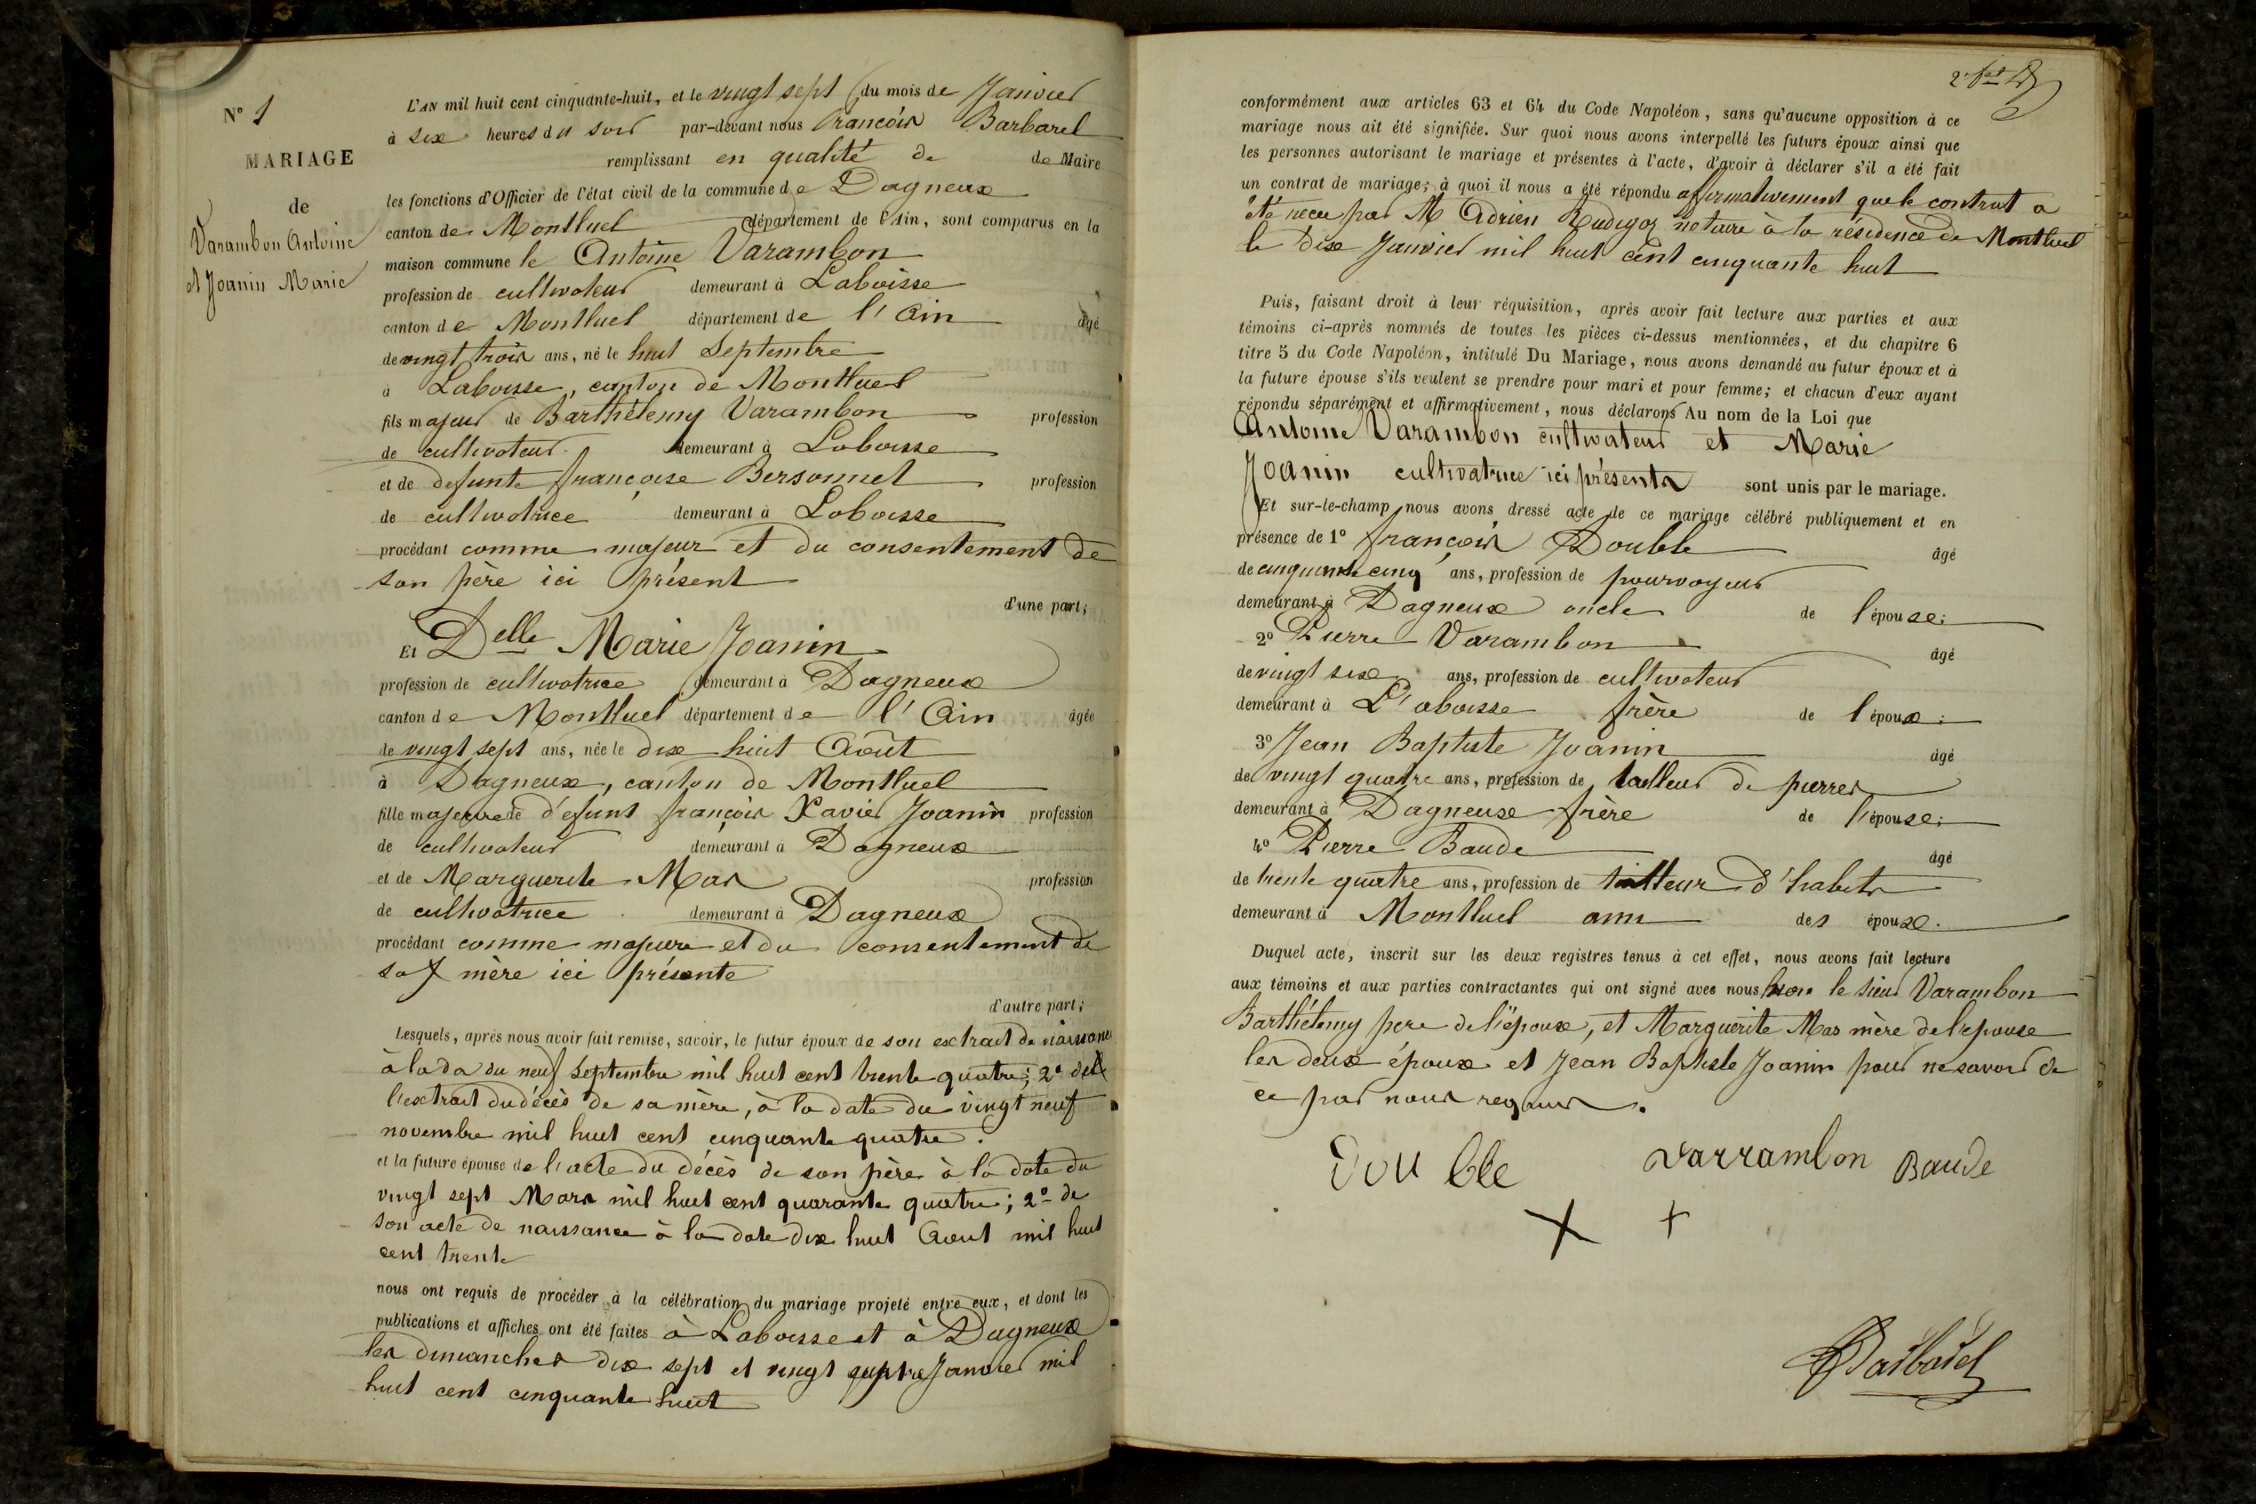 N° 1
MARIAGE
de
Varambon Antoine
et Joanin Marie
L'AN mil huit cent cinquante-huit, et le vingt sept du mois de Janvier
à six heures du soir par-devant nous François Barbarel
remplissant en qualité de de Maire
les fonctions d'Officier de l'état civil de la commune de Dagneux
canton de Montluel département de l'Ain, sont comparus en la
maison commune le Antoine Varambon
profession de cultivateur demeurant à Laboisse
canton de Montluel département de l'Ain âgé
de vingt trois ans, né le huit Septembre
à Laboisse, canton de Montluel
fils majeur de Barthélemy Varambon profession
de cultivateur demeurant à Laboisse
et de defunte françoise Bersonnet profession
de cultivatrice demeurant à Laboisse
procédant comme majeur et du consentement de
son père ici présent
d'une part;
Et Delle Marie Joanin
profession de cultivatrice demeurant à Dagneux
canton de Montluel département de l'Ain âgée
de vingt sept ans, née le dix huit Août
à Dagneux, canton de Montluel
fille majeure de défunt françois Xavier Joanin profession
de cultivateur demeurant à Dagneux
et de Marguerite Mas profession
de cultivatrice demeurant à Dagneux
procédant comme majeure et du consentement de
sa mère ici présente
d'autre part;
Lesquels, après nous avoir fait remise, savoir, le futur époux de son extrait de naissance
à la da du neuf Septembre mil huit cent trente quatre; 2° de
l'extrait du décès de sa mère, à la date du vingt neuf
novembre mil huit cent cinquante quatre.
et la future épouse de l'acte du décès de son père à la date du
vingt sept Mars mil huit cent quarante quatre; 2° de
son acte de naissance à la date dix huit Aout mil huit
cent trente
nous ont requis de procéder à la célébration du mariage projeté entre eux, et dont les
publications et affiches ont été faites à Laboisse et à Dagneux
les dimanches dix sept et vingt quatre Janvier mil
huit cent cinquante huit
2
conformément aux articles 63 et 64 du Code Napoléon, sans qu'aucune opposition à ce
mariage nous ait été signifiée. Sur quoi nous avons interpellé les futurs époux ainsi que
les personnes autorisant le mariage et présentes à l'acte, d'avoir à déclarer s'il a été fait
un contrat de mariage; à quoi il nous a été répondu affirmativement que le contrat a
été reçu par M Adrien Rudigoz notaire à la résidence de Montluel
le dix Janvier mil huit cent cinquante huit
Puis, faisant droit à leur réquisition, après avoir fait lecture aux parties et aux
témoins ci-après nommés de toutes les pièces ci-dessus mentionnées, et du chapitre 6
titre 5 du Code Napoléon, intitulé Du Mariage, nous avons demandé au futur époux et à
la future épouse s'ils veulent se prendre pour mari et pour femme; et chacun d'eux ayant
répondu séparément et affirmativement, nous déclarons Au nom de la Loi que
Antoine Varambon cultivateur et Marie
Joanin cultivatrice ici présents sont unis par le mariage.
Et sur-le-champ nous avons dressé acte de ce mariage célébré publiquement et en
présence de 1° françois Double âgé
de cinquante cinq ans, profession de pourvoyeur
demeurant à Dagneux oncle de l'épouse;
2° Pierre Varambon âgé
de vingt six ans, profession de cultivateur
demeurant à L'aboisse frère de l'époux;
3° Jean Baptiste Joanin âgé
de vingt quatre ans, profession de tailleur de pierres
demeurant à Dagneux frère de l'épouse;
4° Pierre Baude âgé
de trente quatre ans, profession de tailleur d'habits
demeurant à Montluel ami des époux.
Duquel acte, inscrit sur les deux registres tenus à cet effet, nous avons fait lecture
aux témoins et aux parties contractantes qui ont signé avec nous hors le sieur Varambon
Barthélemy pere de l'époux, et Marguerite Mas mère de l'epouse
les deux époux et Jean Baptiste Joanin pour ne savoir de
ce par nous requis.
Double Varrambon Baude
Barbarel